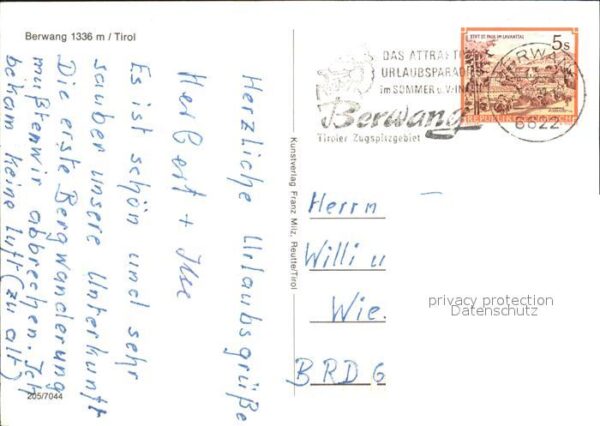 Berwang 1336 m / Tirol
Herzliche Urlaubsgrüße
Herbert + Ilse
Es ist schön und sehr
sauber unsere Unterkunft
Die erste Bergwanderung
mußten wir abbrechen. Ich
bekam keine Luft (zu alt)
205/7044
Kunstverlag Franz Milz, Reutte/Tirol
DAS ATTRAKTIVE
URLAUBSPARADIES
im SOMMER u. WINTER
Berwang
Tiroler Zugspitzgebiet
STIFT ST. PAUL IM LAVANTTAL
5 S
REPUBLIK ÖSTERREICH
BERWANG
6622
Herrn
Willi u
Wie.
BRD 6
privacy protection
Datenschutz